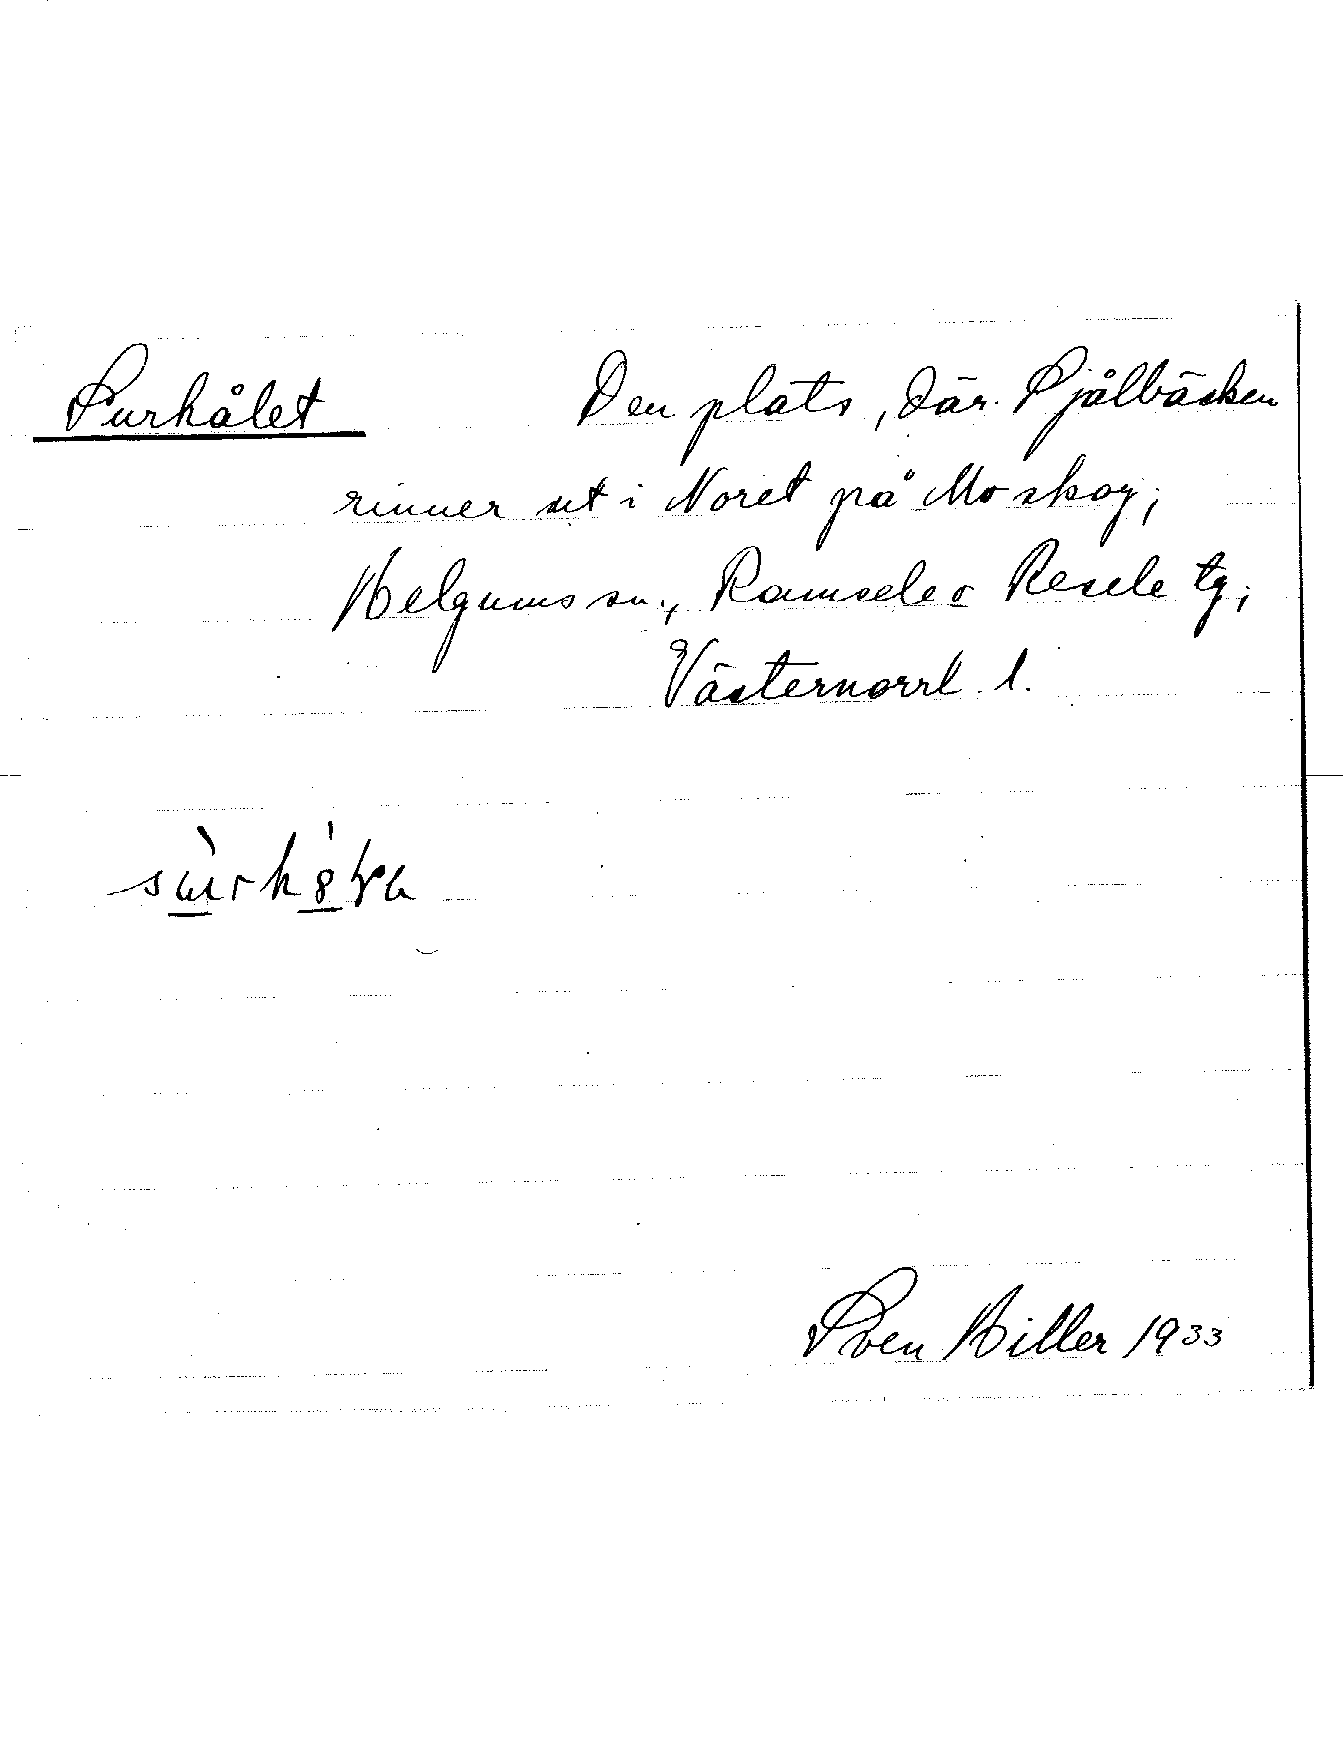 Surhålet Den plats, där Sjålbäcken
rinner ut i Noret på Mo skog;
Helgums sn., Ramsele o Resele tg;
Västernorrl. l.
Sven Hiller 1933